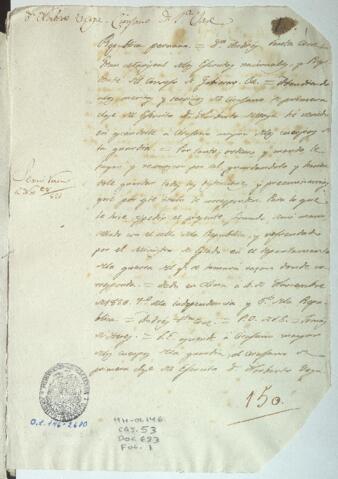 Republica peruana = Dn. Andres Santa Cruz
Gran Mariscal de los Exercitos nacionales, y Presi-
dente del Consejo de Gobierno, &a. = Atendiendo
a los meritos y servicios del cirujano de primera
clase del Exercito Dn. Norberto Vega he venido
en
la guardia = Por tanto, ordeno y mando le
hayan y reconozcan por tal guardandole y haciendo-
le guardar todas las distinciones, y preeminencias,
que por este titulo le corresponden. Para lo que
le hice expedir el presente, firmado
sellado con el sello de la Republica, y refrendado
por el Ministro de Estado en el departamento
de la guerra del qe. se tomará razon donde co-
rresponda. = Dado en Lima á 6 de Noviembre
de 1826. 7º de la independencia y 5º de la Repu-
blica = Andres Sta. Cruz = P.O. de S.E. = Tomas
de Heres = S.E. á Cirujano mayor
de los cuerpos de la guardia, al cirujano de
primera clase del Exercito Dn. Norberto Vega
150.
O.L. 146-2680
MH-OL146
CAJ. 53
DOC 683
FOL. 1